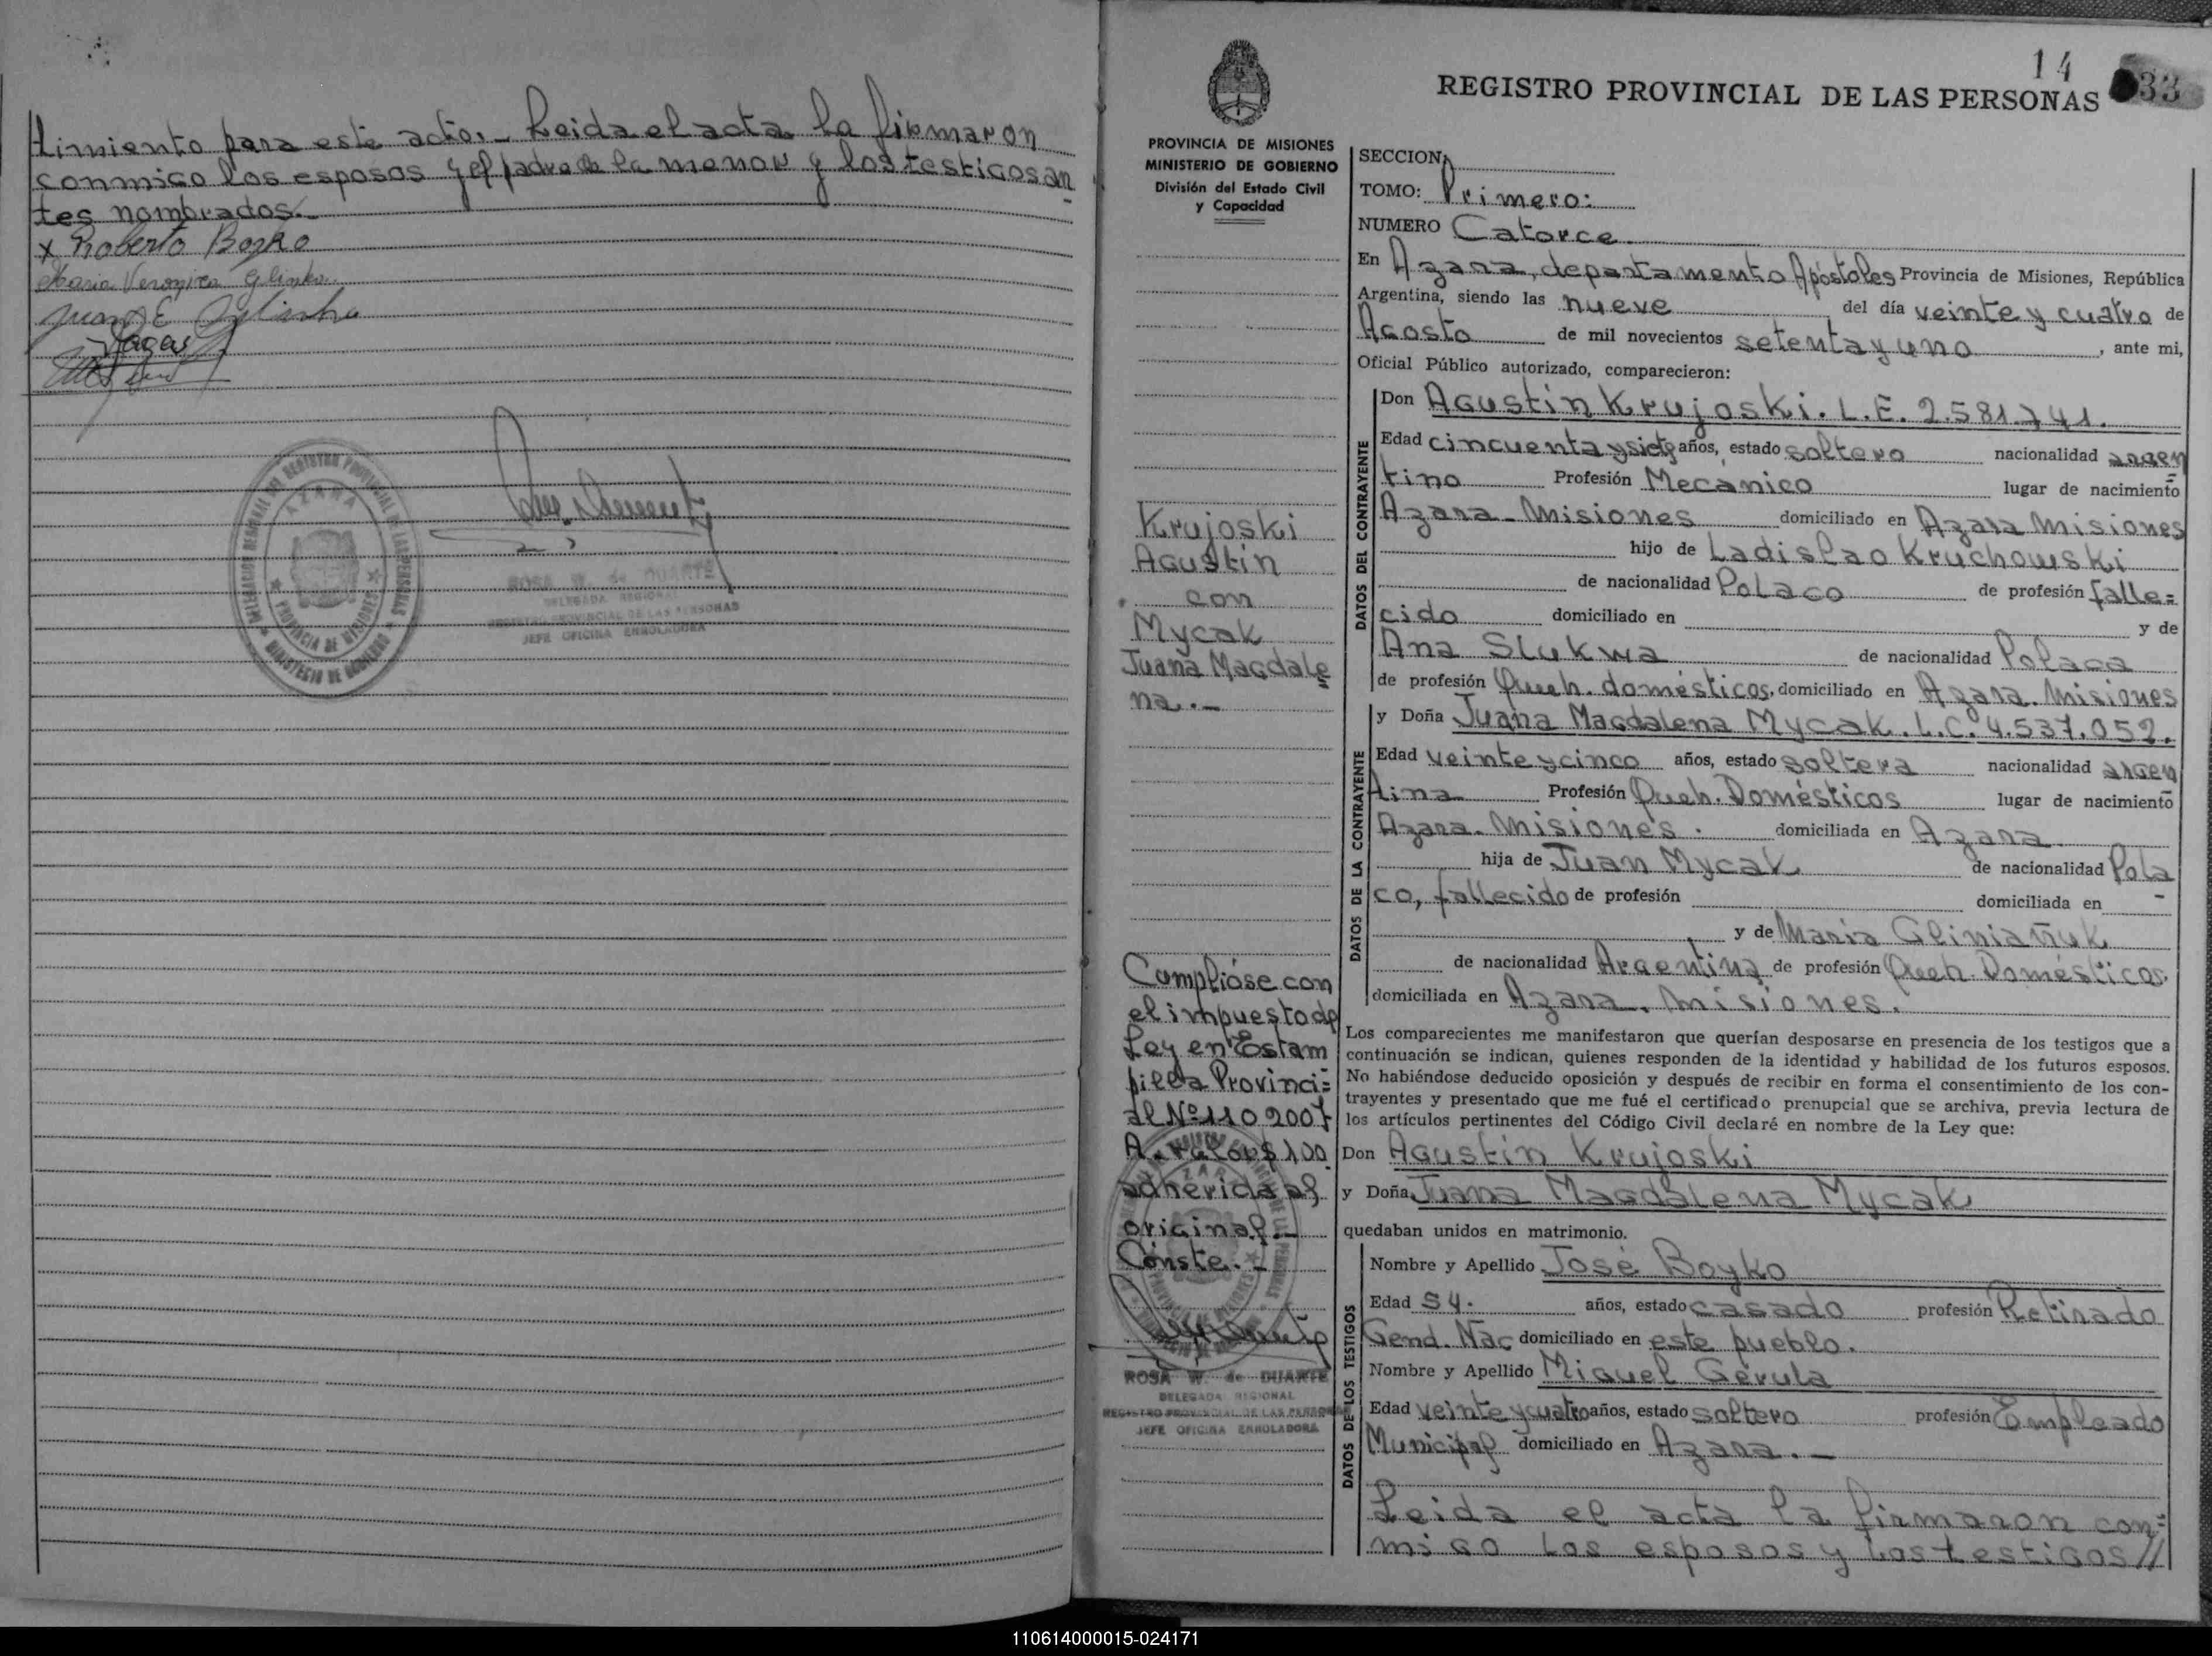 timiento para este acto._ Leida el acta la firmaron
conmigo los esposos y el padre de la menor y los testigos an
tes nombrados._
x Roberto Bozko
Maria Veronica Glinka
Juan E Glinka
MINISTERIO DE GOBIERNO
AZARA
PROVINCIA DE MISIONES
ROSA W. de DUARTE
DELEGADA REGIONAL
REGISTRO PROVINCIAL DE LAS PERSONAS
JEFE OFICINA ENROLADORA
14
33
REGISTRO PROVINCIAL DE LAS PERSONAS
PROVINCIA DE MISIONES
MINISTERIO DE GOBIERNO
División del Estado Civil
y Capacidad
Krujoski
Agustín
con
Mycak
Juana Magdale
na._
Cumplióse con
el impuesto de
Ley en Estam
pilla Provinci=
al Nº 110200
A. valor $ 100
adherida al
original._
Conste._
ROSA W. de DUARTE
DELEGADA REGIONAL
REGISTRO PROVINCIAL DE LAS PERSONAS
JEFE OFICINA ENROLADORA
SECCION,
TOMO: Primero:
NUMERO Catorce.
En Azara, departamento Apóstoles Provincia de Misiones, República
Argentina, siendo las nueve del día veinte y cuatro de
Agosto de mil novecientos setenta y uno, ante mi,
Oficial Público autorizado, comparecieron:
DATOS DEL CONTRAYENTE
Don Agustín Krujoski. L.E. 2.581.741.
Edad cincuenta y siete años, estado soltero nacionalidad argen
tino Profesión Mecánico lugar de nacimiento
Azara - Misiones domiciliado en Azara Misiones
hijo de Ladislao Kruchowski
de nacionalidad Polaco de profesión falle=
cido domiciliado en y de
Ana Slukwa de nacionalidad Polaca
de profesión Queh. domésticos, domiciliado en Azara. Misiones
DATOS DE LA CONTRAYENTE
y Doña Juana Magdalena Mycak. L.C. 4.537.052.
Edad veinte y cinco años, estado soltera nacionalidad argen
tina Profesión Queh. Domésticos lugar de nacimiento
Azara. Misiones. domiciliada en Azara.
hija de Juan Mycak de nacionalidad Pola
co, fallecido de profesión domiciliada en -
y de Maria Gliniañuk
de nacionalidad Argentina de profesión Queh. Domésticos.
domiciliada en Azara. Misiones.
Los comparecientes me manifestaron que querían desposarse en presencia de los testigos que a
continuación se indican, quienes responden de la identidad y habilidad de los futuros esposos.
No habiéndose deducido oposición y después de recibir en forma el consentimiento de los con-
trayentes y presentado que me fué el certificado prenupcial que se archiva, previa lectura de
los artículos pertinentes del Código Civil declaré en nombre de la Ley que:
Don Agustín Krujoski
y Doña Juana Magdalena Mycak
quedaban unidos en matrimonio.
DATOS DE LOS TESTIGOS
Nombre y Apellido José Boyko
Edad 54. años, estado casado profesión Retirado
Gend. Nac domiciliado en este pueblo.
Nombre y Apellido Miguel Gerula
Edad veinte y cuatro años, estado soltero profesión Empleado
Municipal domiciliado en Azara._
Leida el acta la firmaron con=
migo los esposos y los testigos//
110614000015-024171